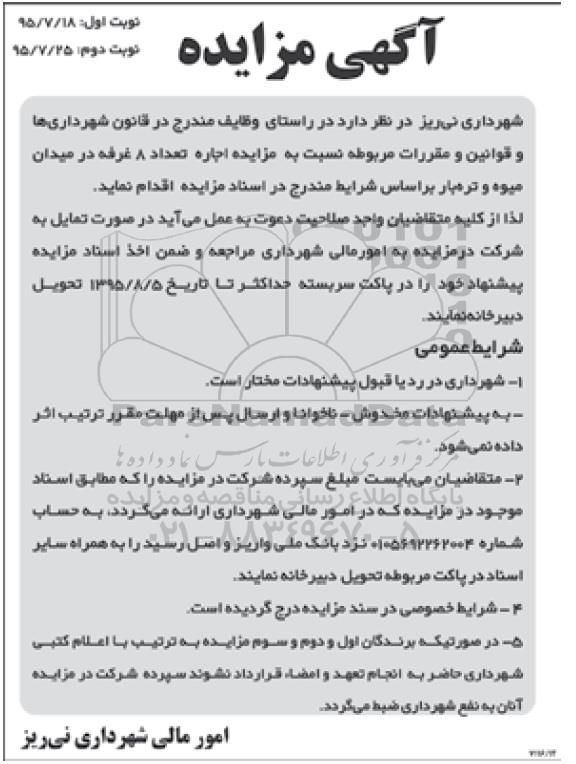 آگهی مزایده
نوبت اول: ۹۵/۷/۱۸
نوبت دوم: ۹۵/۷/۲۵
شهرداری نی‌ریز در نظر دارد در راستای وظایف مندرج در قانون شهرداری‌ها
و قوانین و مقررات مربوطه نسبت به مزایده اجاره تعداد ۸ غرفه در میدان
میوه و تره‌بار براساس شرایط مندرج در اسناد مزایده اقدام نماید.
لذا از کلیه متقاضیان واجد صلاحیت دعوت به عمل می‌آید در صورت تمایل به
شرکت درمزایده به امورمالی شهرداری مراجعه و ضمن اخذ اسناد مزایده
پیشنهاد خود را در پاکت سربسته حداکثر تا تاریخ ۱۳۹۵/۸/۵ تحویل
دبیرخانه‌نمایند.
شرایط عمومی
۱- شهرداری در رد یا قبول پیشنهادات مختار است.
- به پیشنهادات مخدوش - ناخوانا و ارسال پس از مهلت مقرر ترتیب اثر
داده نمی‌شود.
۲- متقاضیان می‌بایست مبلغ سپرده شرکت در مزایده را که مطابق اسناد
موجود در مزایده که در امور مالی شهرداری ارائه می‌گردد، به حساب
شماره ۰۱۰۵۶۹۲۲۶۲۰۰۴ نزد بانک ملی واریز و اصل رسید را به همراه سایر
اسناد در پاکت مربوطه تحویل دبیرخانه نمایند.
۴- شرایط خصوصی در سند مزایده درج گردیده است.
۵- در صورتیکه برندگان اول و دوم و سوم مزایده به ترتیب با اعلام کتبی
شهرداری حاضر به انجام تعهد و امضاء قرارداد نشوند سپرده شرکت در مزایده
آنان به نفع شهرداری ضبط می‌گردد.
امور مالی شهرداری نی‌ریز
ParsNamadData
مرکز فرآوری اطلاعات پارس نماد داده ها
پایگاه اطلاع رسانی مناقصه و مزایده
۰۲۱-۸۸۳۴۹۶۷۰-۵